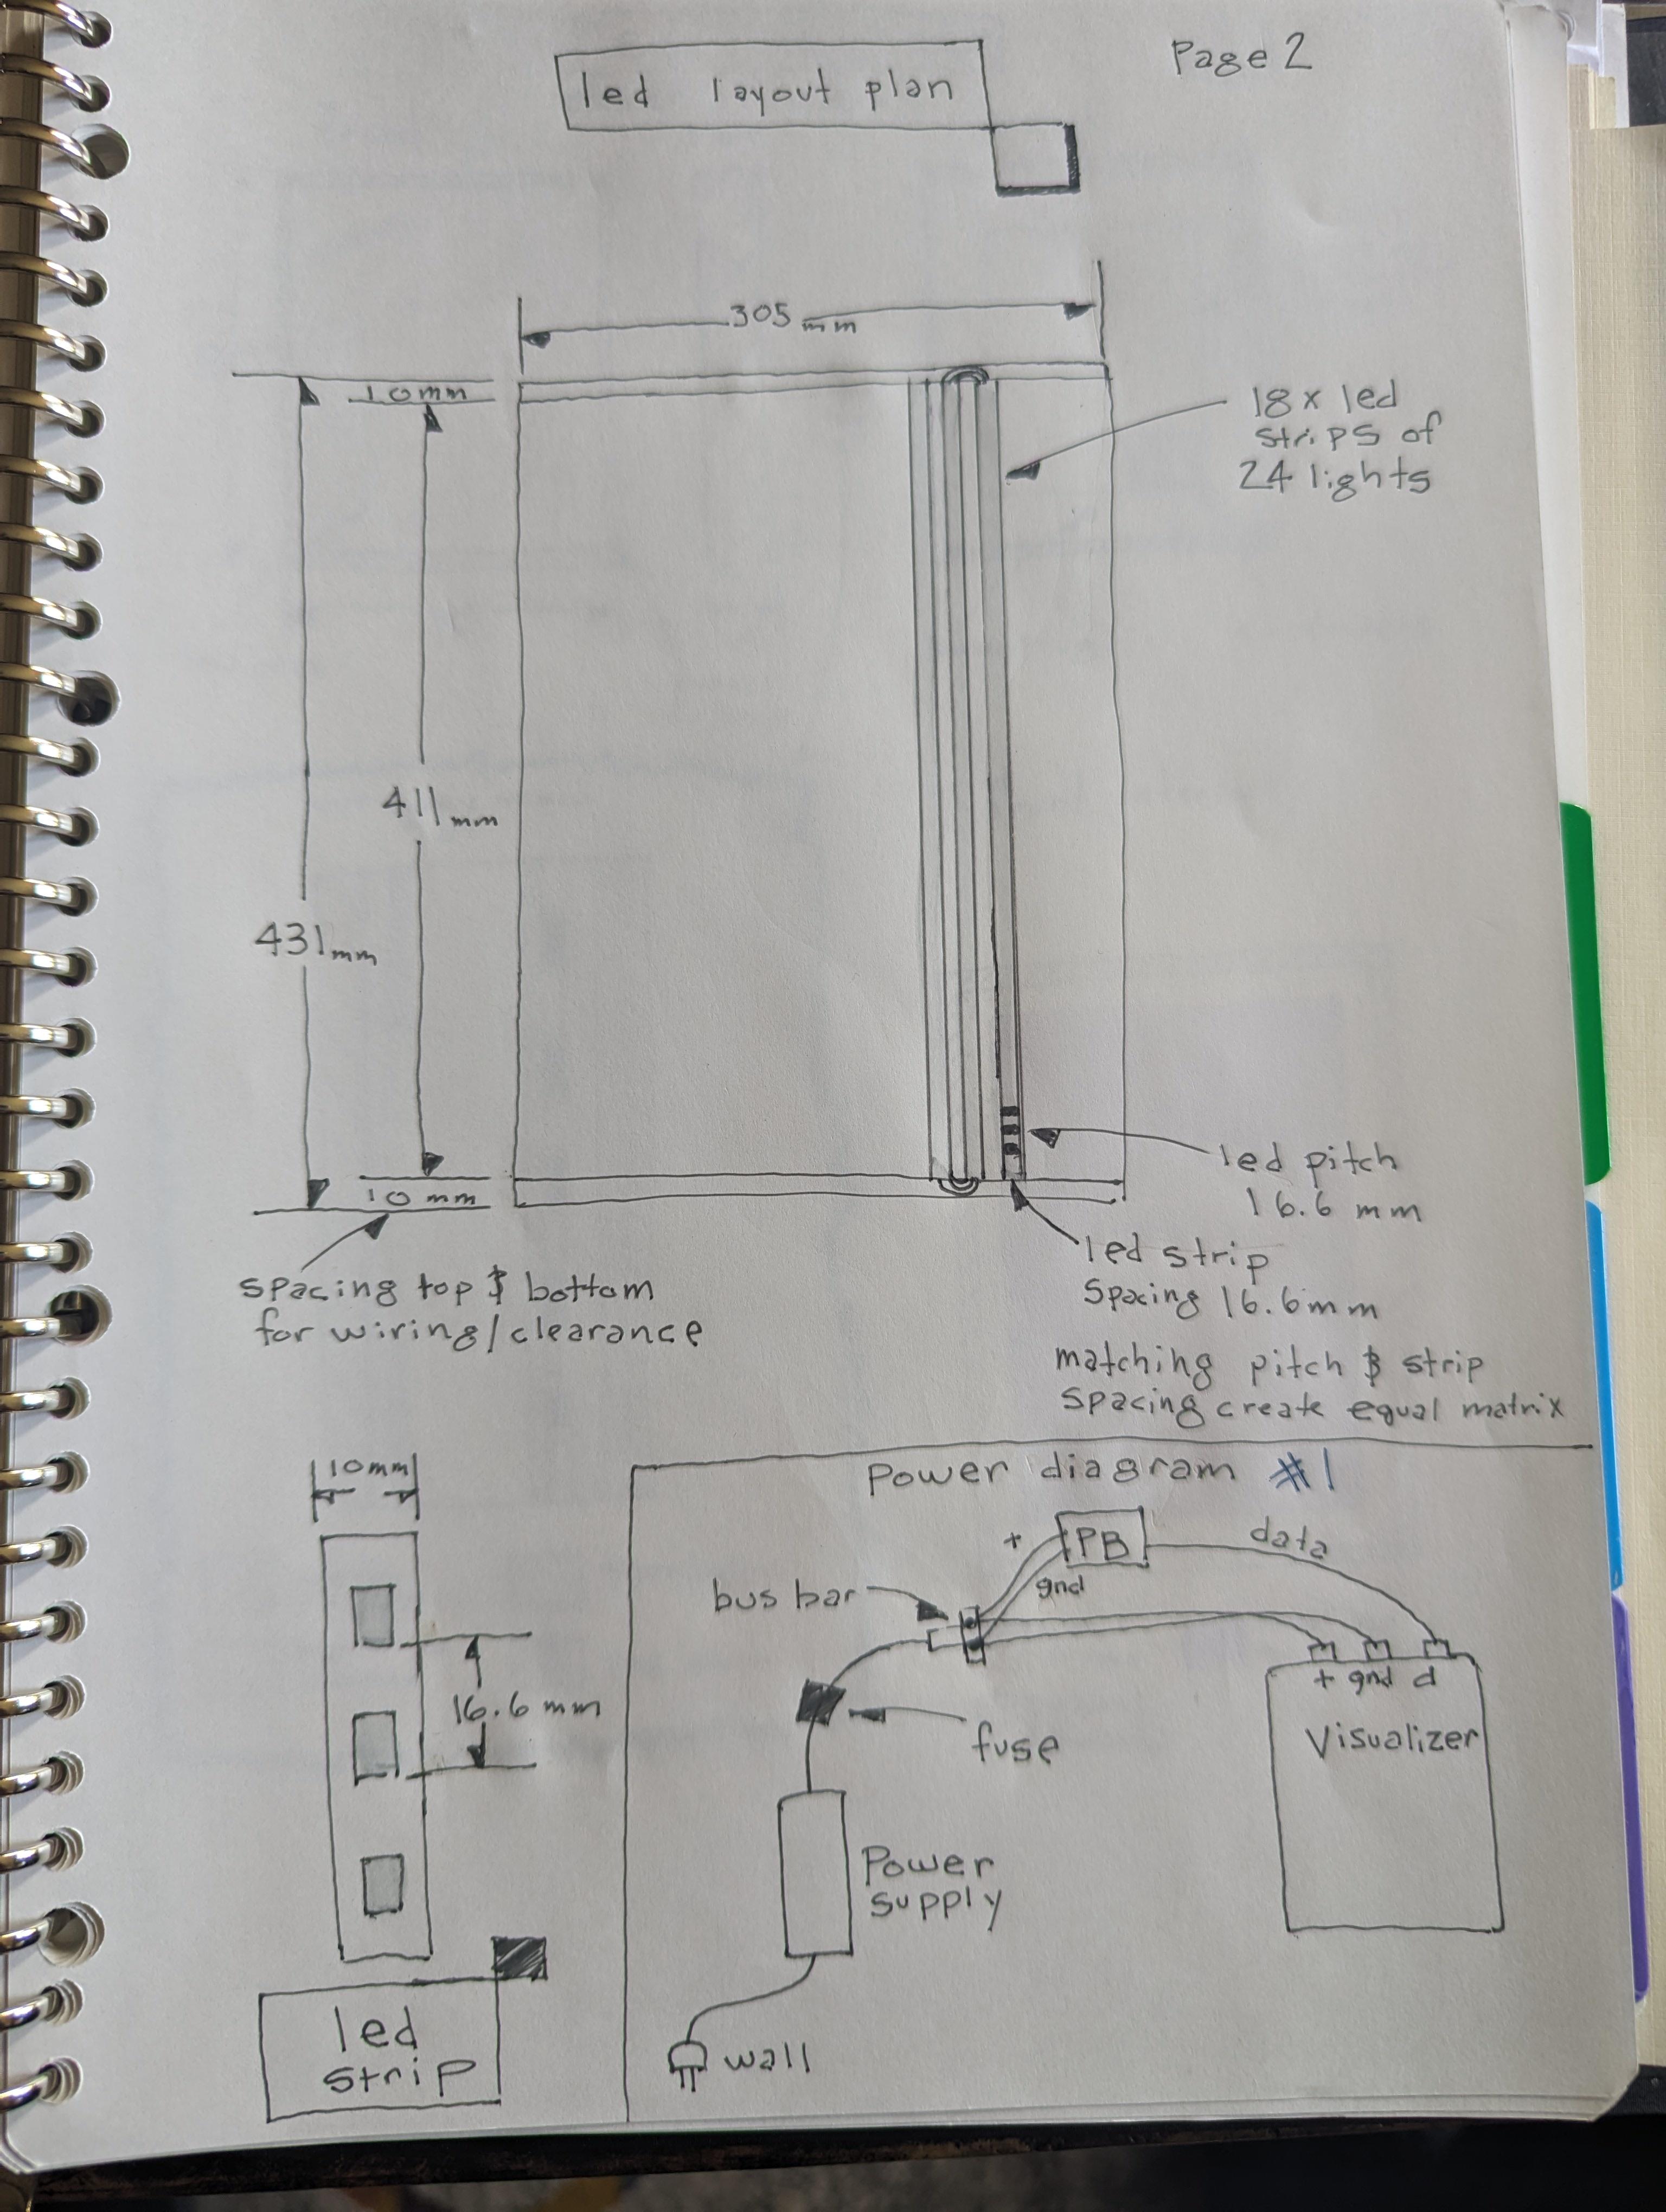 Page 2
led layout plan
305 mm
10mm
18 x led
strips of
24 lights
411 mm
431 mm
10 mm
led pitch
16.6 mm
led strip
spacing 16.6mm
spacing top & bottom
for wiring/clearance
matching pitch & strip
spacing create equal matrix
10mm
16.6 mm
led
strip
Power diagram #1
+
PB
data
gnd
bus bar
fuse
+ gnd d
Visualizer
Power
supply
wall